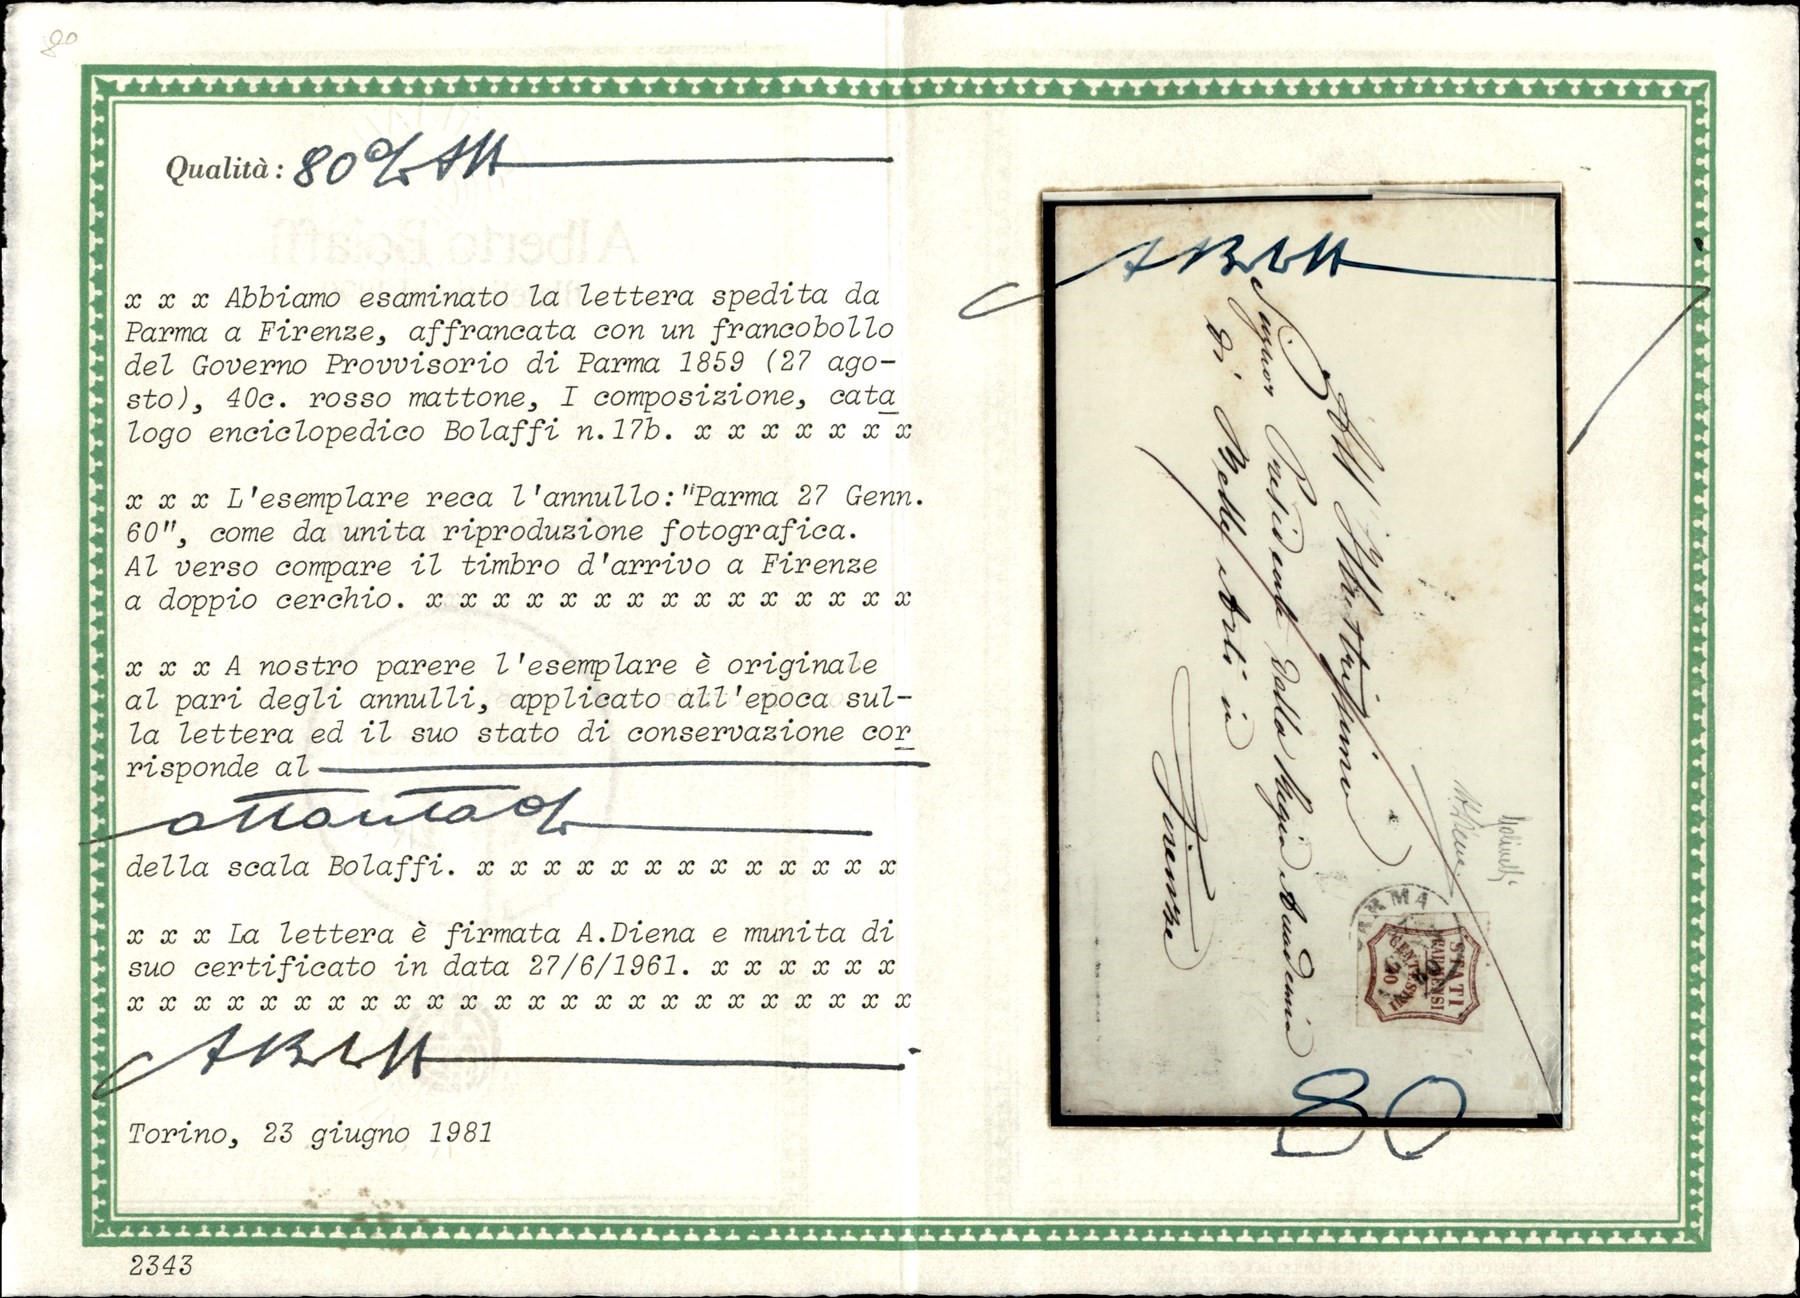 80
Qualità: 80%
x x x Abbiamo esaminato la lettera spedita da
Parma a Firenze, affrancata con un francobollo
del Governo Provvisorio di Parma 1859 (27 ago-
sto), 40c. rosso mattone, I composizione, cata
logo enciclopedico Bolaffi n.17b. x x x x x x x
x x x L'esemplare reca l'annullo:"Parma 27 Genn.
60", come da unita riproduzione fotografica.
Al verso compare il timbro d'arrivo a Firenze
a doppio cerchio. x x x x x x x x x x x x x x x
x x x A nostro parere l'esemplare è originale
al pari degli annulli, applicato all'epoca sul-
la lettera ed il suo stato di conservazione cor
risponde al
ottanta%
della scala Bolaffi. x x x x x x x x x x x x x
x x x La lettera è firmata A.Diena e munita di
suo certificato in data 27/6/1961. x x x x x x
x x x x x x x x x x x x x x x x x x x x x x x x
Torino, 23 giugno 1981
2343
All' Illustrissimo
Signor Presidente della Regia Accademia
di Belle Arti in
Firenze
PARMA
STATI
PARMENSI
CENTESIMI
80